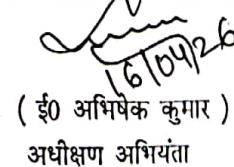 16/04/26
( ई0 अभिषेक कुमार )
अधीक्षण अभियंता